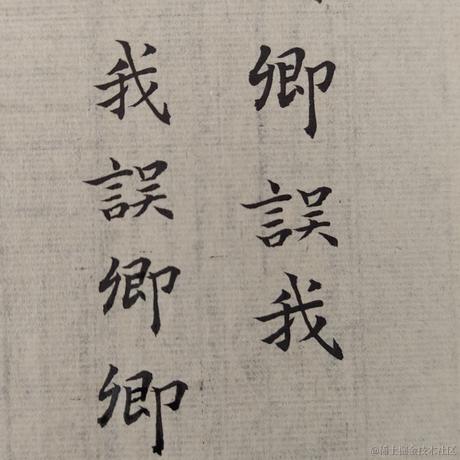 卿誤我
我誤卿卿
@稀土掘金技术社区